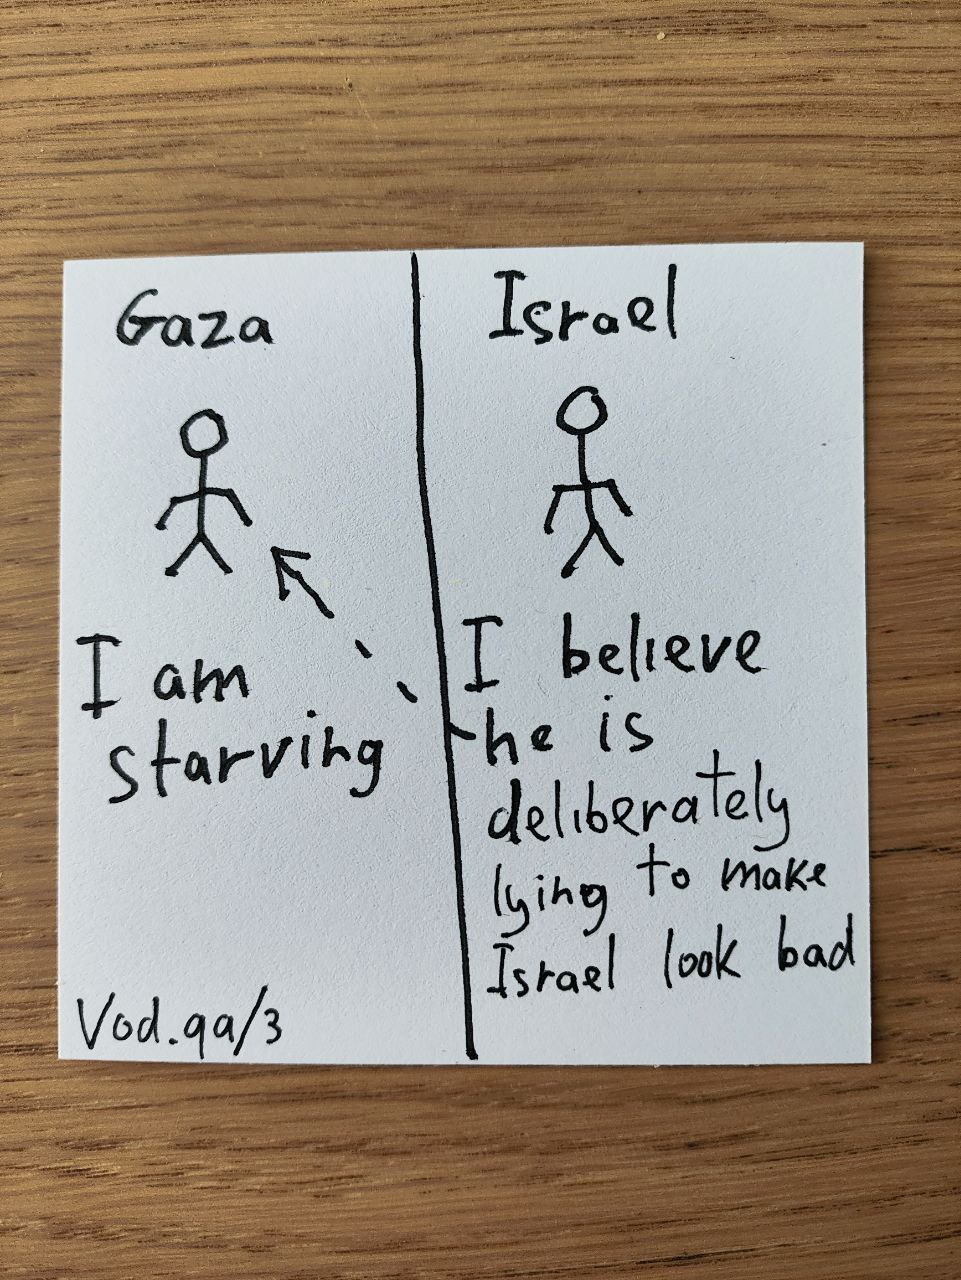 Gaza
I am
starving
Vod.qa/3
Israel
I believe
he is
deliberately
lying to make
Israel look bad